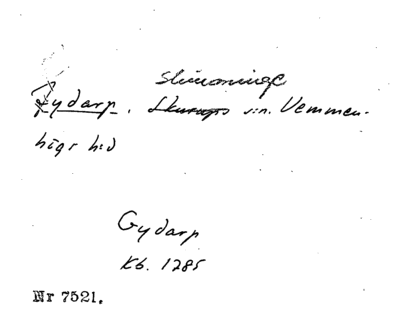 Slimminge
Rydarp, Skurups s:n. Vemmen-
högs hd
Gydarp
Kb. 1285
Nr 7521.